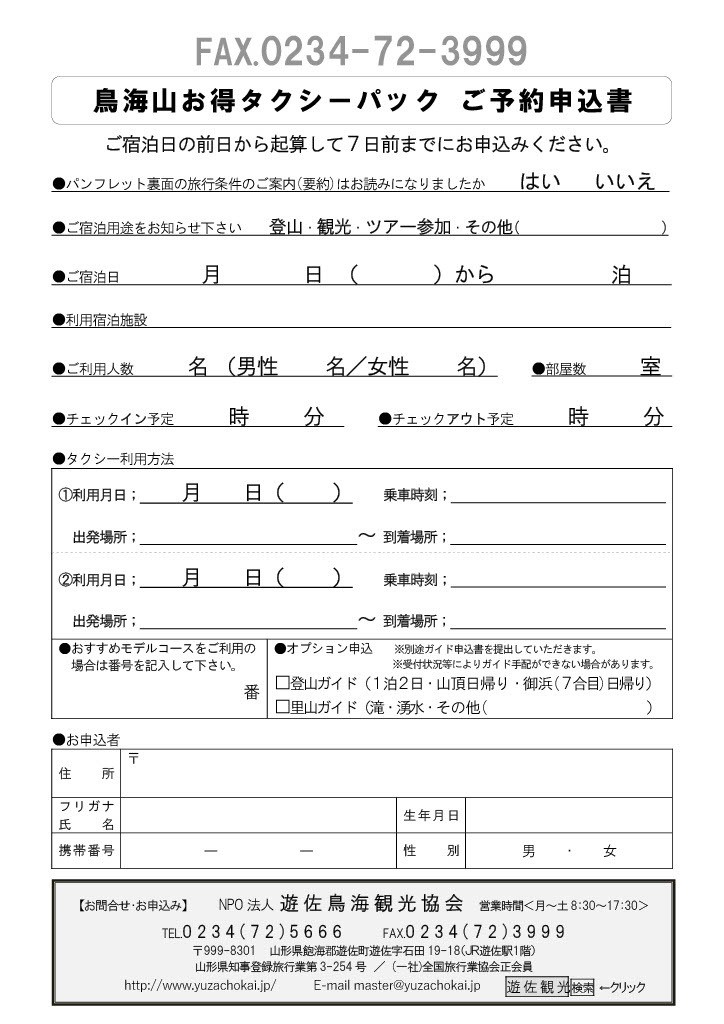 FAX.0234-72-3999
鳥海山お得タクシーパック ご予約申込書
ご宿泊日の前日から起算して7日前までにお申込みください。
●パンフレット裏面の旅行条件のご案内(要約)はお読みになりましたか はい いいえ
●ご宿泊用途をお知らせ下さい 登山・観光・ツアー参加・その他( )
●ご宿泊日 月 日 ( )から 泊
●利用宿泊施設
●ご利用人数 名 (男性 名/女性 名) ●部屋数 室
●チェックイン予定 時 分 ●チェックアウト予定 時 分
●タクシー利用方法
①利用月日; 月 日( ) 乗車時刻;
出発場所; 〜 到着場所;
②利用月日; 月 日( ) 乗車時刻;
出発場所; 〜 到着場所;
●おすすめモデルコースをご利用の
場合は番号を記入して下さい。
番
●オプション申込 ※別途ガイド申込書を提出していただきます。
※受付状況等によりガイド手配ができない場合があります。
□登山ガイド(1泊2日・山頂日帰り・御浜(7合目)日帰り)
□里山ガイド(滝・湧水・その他( )
●お申込者
住 所 〒
フリガナ
氏 名 生年月日
携帯番号 ― ― 性 別 男 ・ 女
【お問合せ・お申込み】 NPO法人 遊佐鳥海観光協会 営業時間<月〜土8:30〜17:30>
TEL.0234(72)5666 FAX.0234(72)3999
〒999-8301 山形県飽海郡遊佐町遊佐字石田19-18(JR遊佐駅1階)
山形県知事登録旅行業第3-254号 / (一社)全国旅行業協会正会員
http://www.yuzachokai.jp/ E-mail master@yuzachokai.jp 遊佐観光 検索 ←クリック